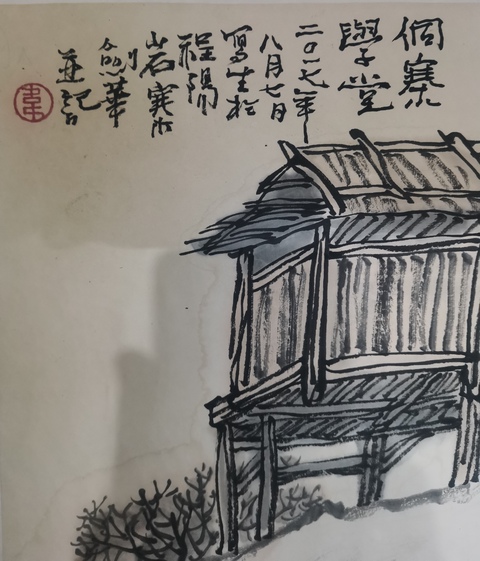 侗寨
學堂
二〇一七年
八月七日
寫生於
程陽
岩寨
華
並記
韋